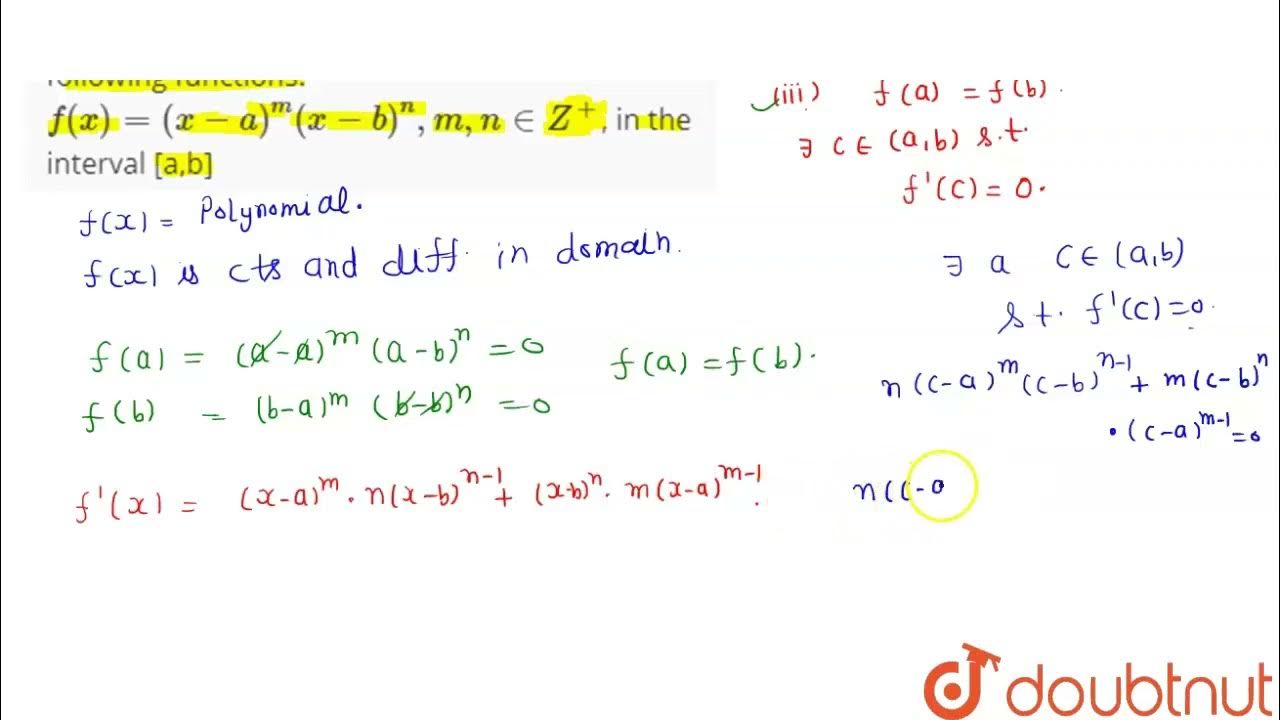 following functions.
f(x) = (x − a)^m (x − b)^n, m, n ∈ Z^+, in the
interval [a,b]
f(x) = Polynomial.
f(x) is cts and diff. in domain.
f(a) = (a-a)^m (a-b)^n = 0
f(b) = (b-a)^m (b-b)^n = 0
f(a) = f(b).
f'(x) = (x-a)^m . n(x-b)^{n-1} + (x-b)^n . m(x-a)^{m-1}.
(iii) f(a) = f(b).
∃ c ∈ (a,b) s.t.
f'(c) = 0.
∃ a c ∈ (a,b)
s.t. f'(c) = 0.
n(c-a)^m (c-b)^{n-1} + m(c-b)^n
. (c-a)^{m-1} = 0
n(c-a
doubtnut